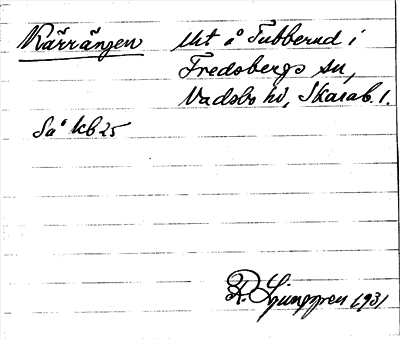 Kärrängen Mt å Tubberud i
Fredsbergs sn,
Vadsbo hd, Skarab. l.
Så kb 25
R. Ljunggren 1931